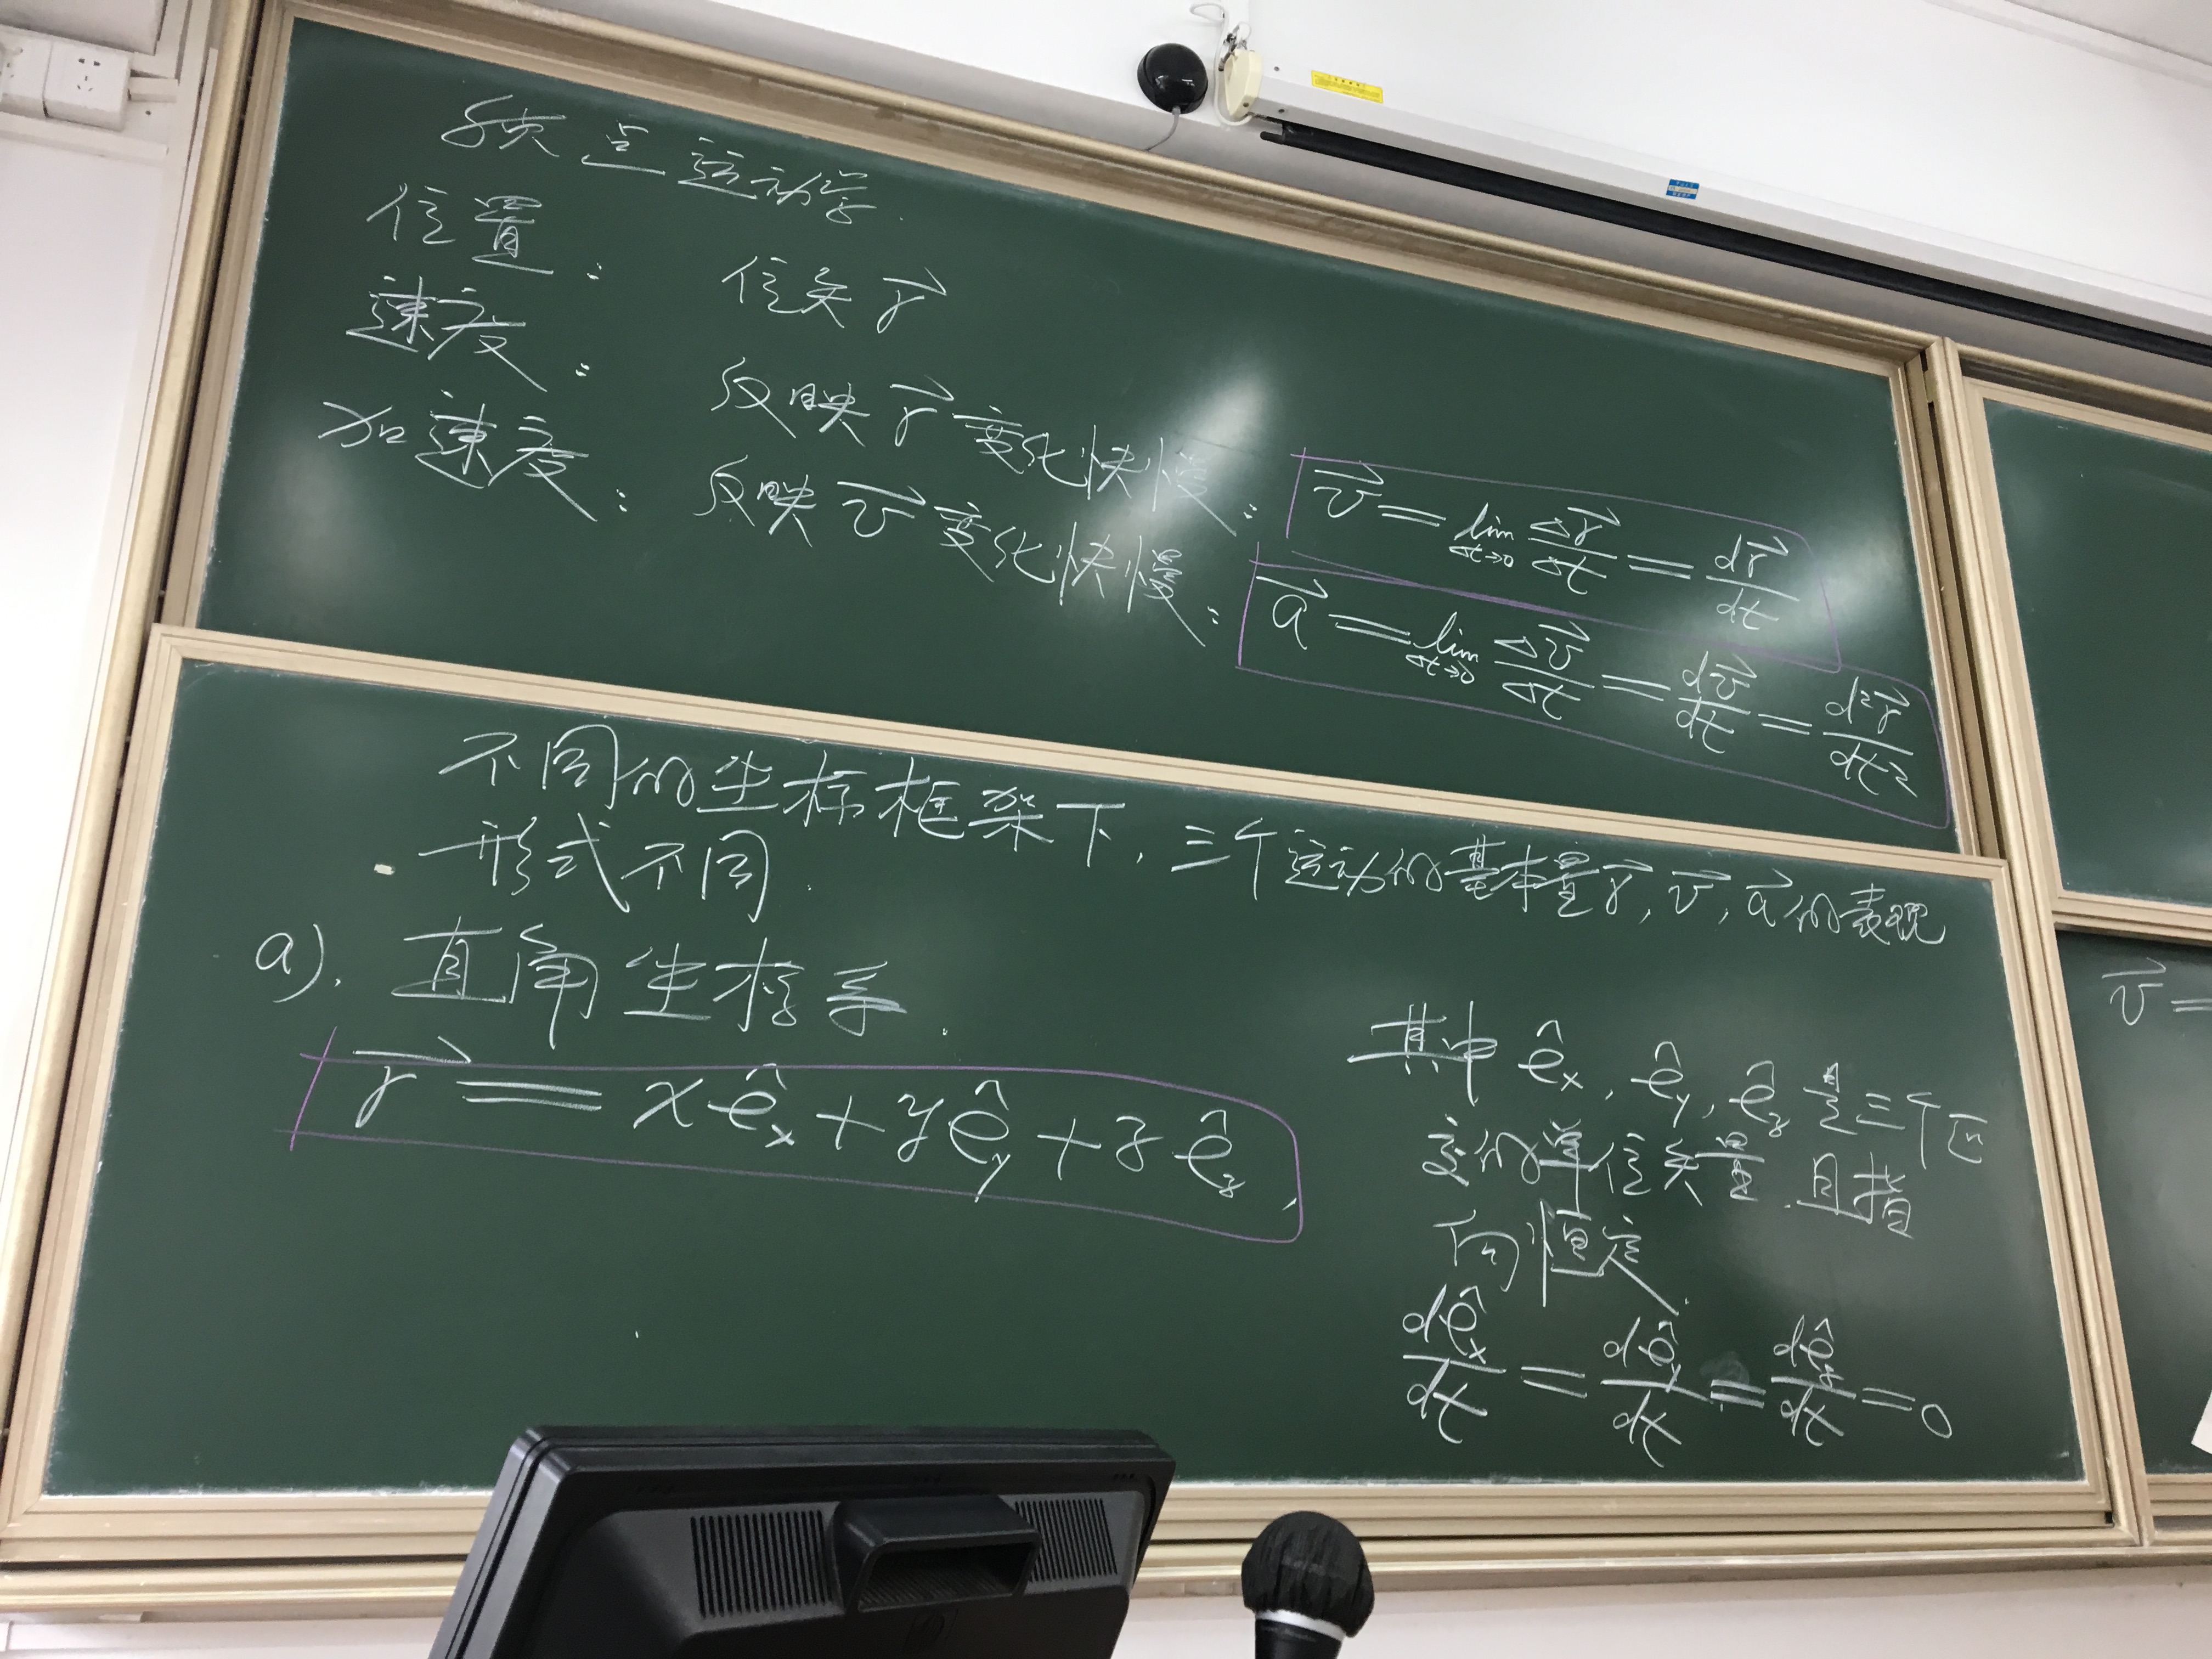 质点运动学.
位置: 位矢 r⃗
速度: 反映 r⃗ 变化快慢: v⃗ = lim_{Δt→0} Δr⃗/Δt = dr⃗/dt
加速度: 反映 v⃗ 变化快慢: a⃗ = lim_{Δt→0} Δv⃗/Δt = dv⃗/dt = d²r⃗/dt²
不同的坐标框架下, 三个运动的基本量 r⃗, v⃗, a⃗ 的表现
形式不同.
a). 直角坐标系.
r⃗ = xê_x + yê_y + zê_z,
其中 ê_x, ê_y, ê_z 是三个正
交的单位矢量. 且指
向恒定.
dê_x/dt = dê_y/dt = dê_z/dt = 0
v⃗ =